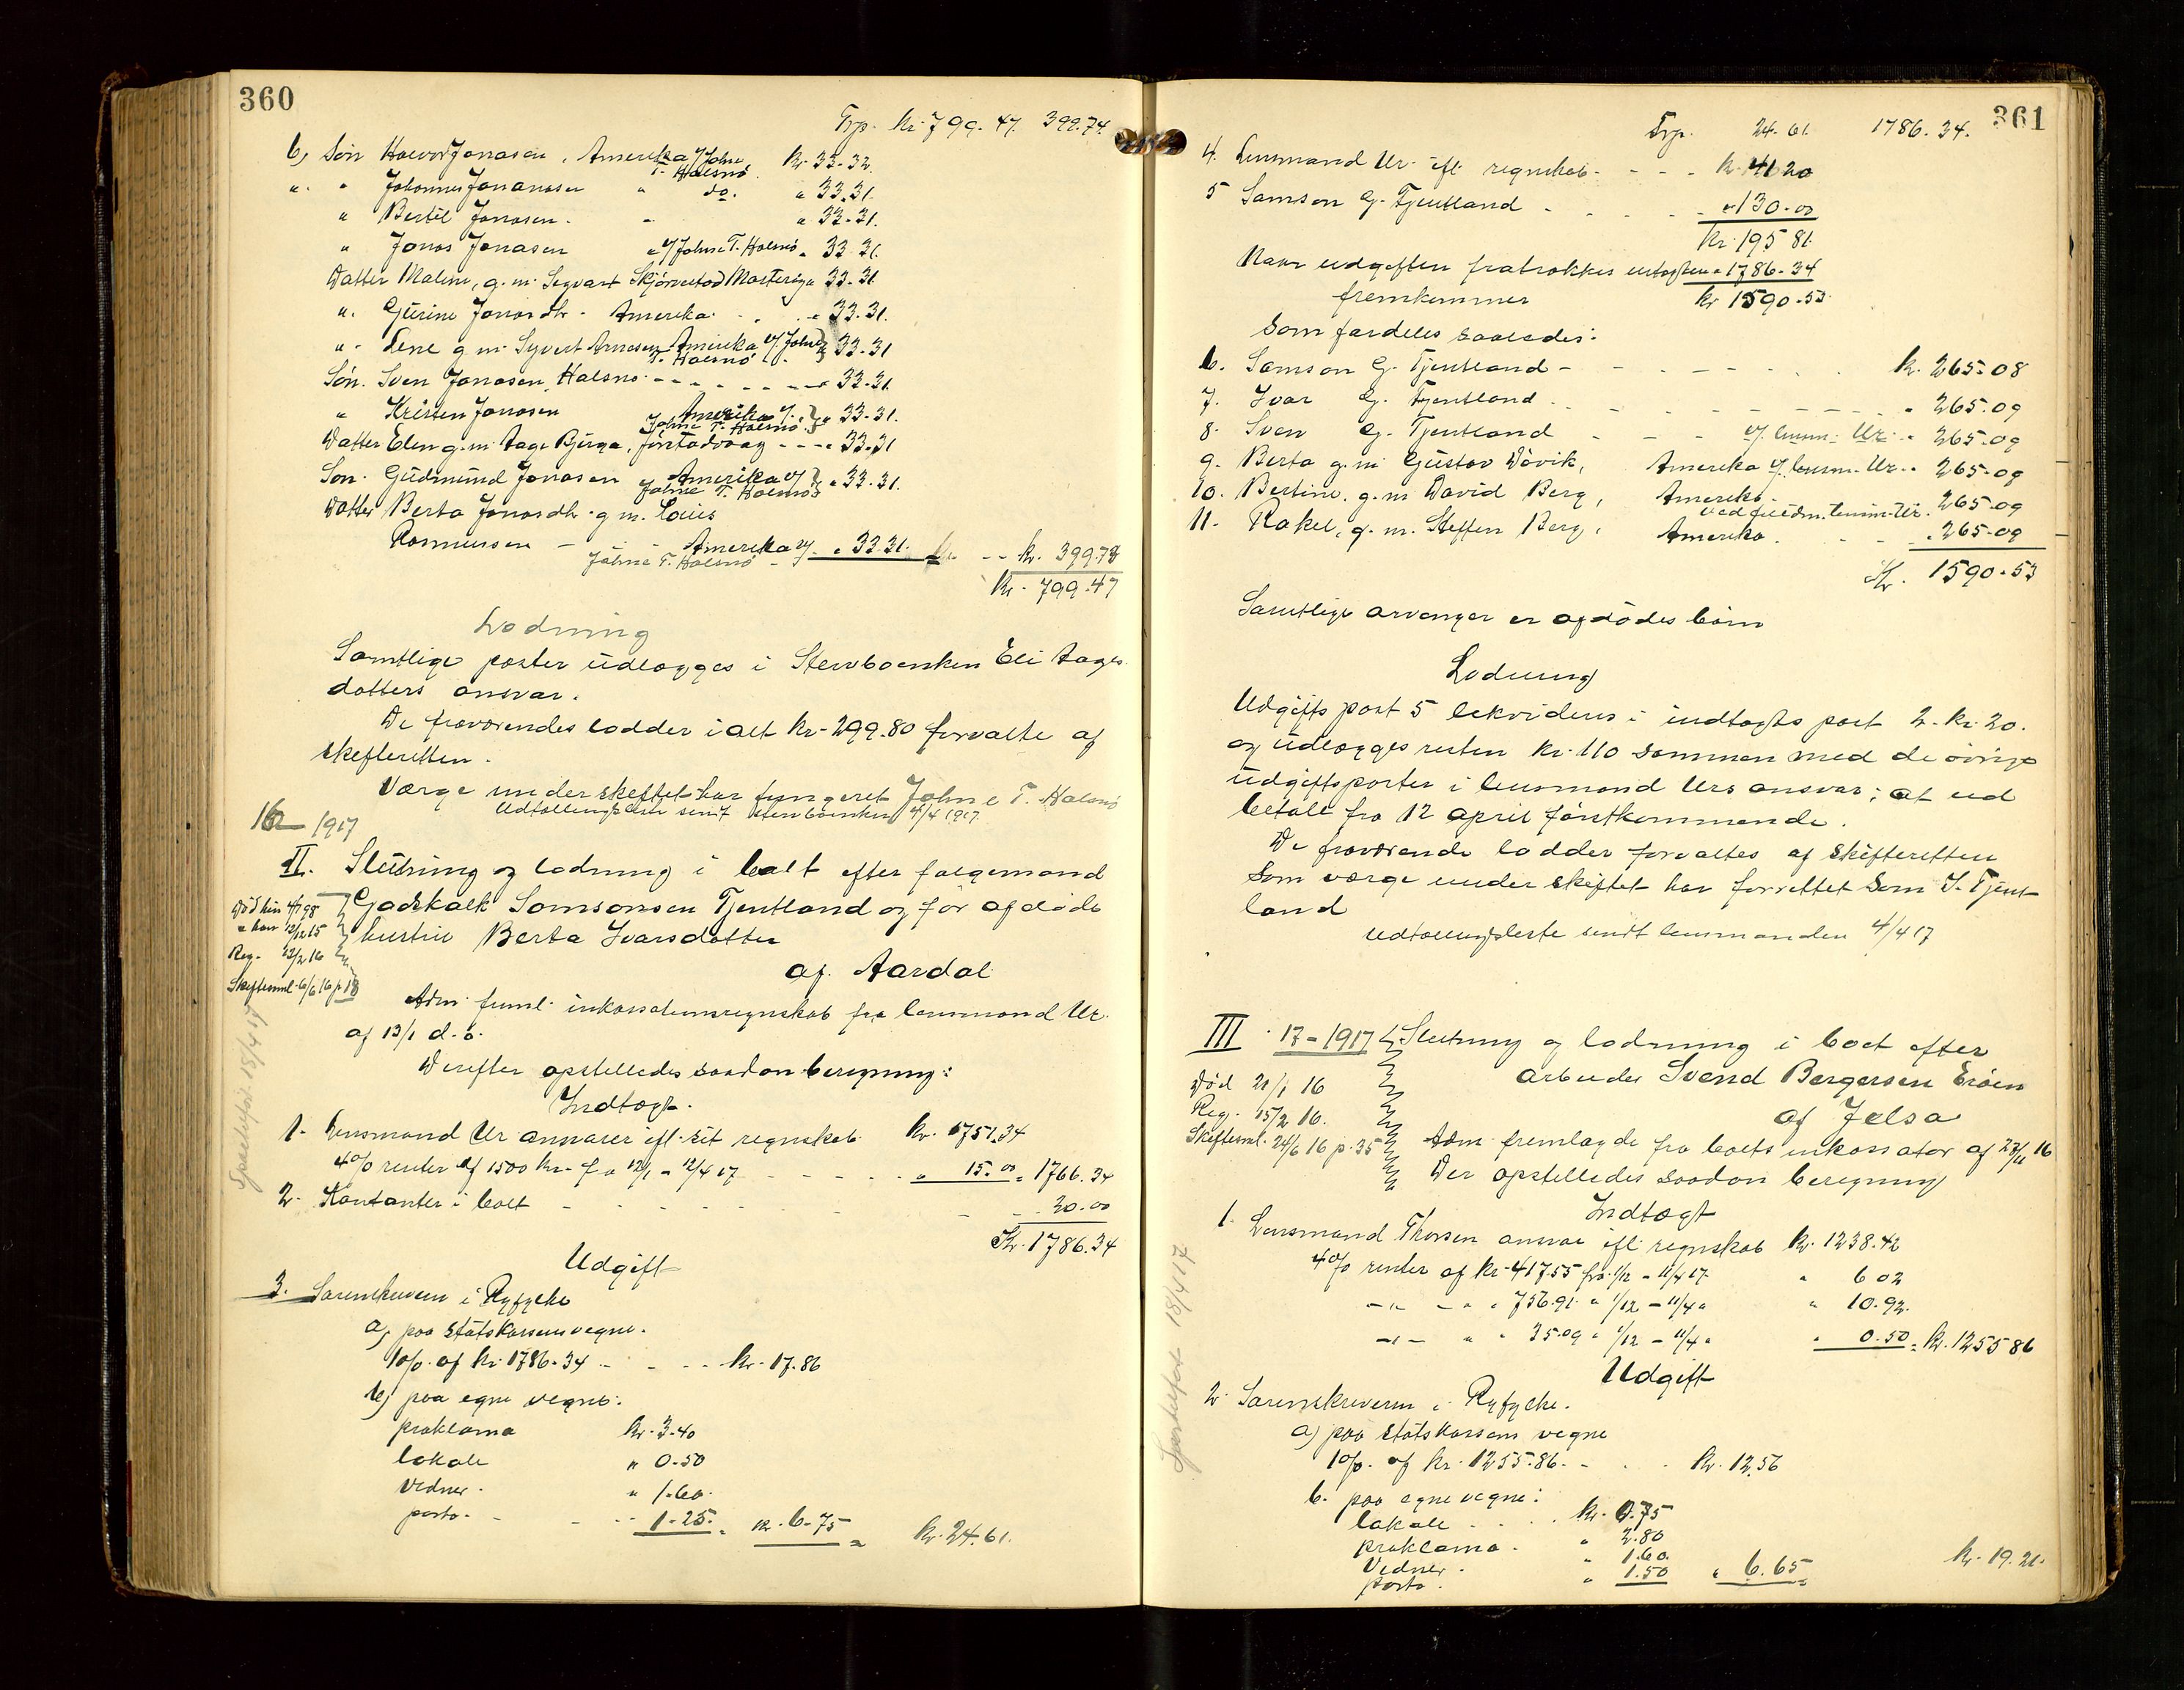 360
Trp. kr. 799.47. 399.74.
b, Søn Haevor Jonasen, Amerika v/ Johne T. Halsnø kr. 33.32.
" " Johannes Jonanasen " do. " 33.31.
" Bertil Jonasen. - " 33.31.
" Jonas Jonasen " v/ Johne T. Halsnø " 33.31.
Datter Maline, g. m. Segvart Skjørvestad Mosterøy " 33.31
". Gurine Jonasdtr. Amerika. " 33.31.
". Lene g m. Syvert Arnesen Amerika v/. Johne T. Halsnø " 33.31
Søn. Sven Jonasen, Halsnø - - - - - " 33.31
" Kristen Jonasen Amerika v. Johne T. Halsnø " 33.31.
Datter Elen g. m. Aage Birga, Jøstadvaag - - - " 33.31
Søn. Gudmund Jonasen Amerika v/ Johne T. Halsnø " 33.31.
Datter Berta Jonasdtr. g m. Louis
Rasmussen - - Amerika v/ Johne T. Halsnø " 33.31. - - kr. 399.73
Kr. 799.47
Lodning
Samtlige poster udlægges i Stervboenken Eli Aages
datters ansvar.
De fraværendes lodder i alt kr. 299.80 forvalte af
skifteretten.
Værge under skiftet har fungeret Johne T. Halsnø
Udtællingsliste sendt stervboenken 4/4 1917.
16 - 1917
II. Slutning og lodning i boet efter folgemand
Død hun 4/7 98 Godskalk Samsonsen Tjentland og før afdøde
" han 12/12 15 hustru Berta Ivarsdatter
Reg. 12/2 16
af Aardal
Skiftesml. 6/6 16 p. 18
Adm. freml. inkassationsregnskab fra lensmand Ur.
af 13/1 d. å.
Derefter opstilledes saadan beregning:
Indtægt.
1. Lensmand Ur ansvarer efl. sit regnskab kr. 1751.34
4% renter af 1500 kr. fra 12/1 - 12/4 17 - - - - " 15.00 = 1766.34
2. Kontanter i boet - - - - - 20.00
Kr. 1786.34
Udgift
3. Sorenskriveren i Ryfylke
a, paa statskassens vegne.
1%. af kr. 1786.34 - - - kr. 17.86
b) paa egne vegne:
proklama kr. 3.40
lokale " 0.50
vidner. " 1.60.
porto. - - - 1.25. = kr. 6.75 = kr. 24.61.
Sportelført 18/4 17
361
Trp. 24.61. 1786.34.
4. Lensmand Ur. efl. regnskab. - - - kr. 41.20
5 Samson G. Tjentland - - - " 130.00
Kr. 195.81.
Naar udgiften fratrækkes indtægten " 1786.34
fremkommer kr 1590.53.
som fordeles saaledes:
6. Samson G. Tjentland - - - - kr. 265.08
7. Ivar G. Tjentland - - - - " 265.09
8. Sven G. Tjentland - - - v/. lensm. Ur. " 265.09
9. Berta g. m. Gustav Vovik, Amerika v/ lensm. Ur. " 265.09
10. Bertine. g. m David Berg, Amerika. 265.09
ved fuldm. lensm. Ur.
11. Rakel, g. m. Steffen Berg, Amerika. - - " 265.09
Kr. 1590.53
Samtlige arvinger er afdødes børn
Lodning
Udgifts post 5 likvideres i indtægts post 2. kr. 20.
og udlægges resten kr. 110 sammen med de øvrige
udgiftsposter i lensmand Urs ansvar; at ud
betale fra 12 april førstkommende.
De fraværende lodder forvaltes af skifteretten
Som værge under skiftet har forrettet Sam S. Tjent-
land
Udtællingsliste sendt lensmanden 4/4 17
III. 17 - 1917 Slutning og lodning i boet efter
arbeider Svend Bergersen Erøen
Død 21/1 16
af Jelsa
Reg. 15/2 16.
Skiftesml. 24/6 16 p. 35 Adm fremlagde fra boets inkassator af 28/11 16
Der opstilledes saadan beregning
Indtægt
1. Lensmand Thorsen ansvar efl. regnskab kr. 1238.42
4% renter af kr. 417.55 fra 1/12 - 11/4 17 " 6 02
- " - " " 756.91. " 1/12 - 11/4 " " 10.92.
- " - " " 35.09 " 1/12 - 11/4 " " 0.50 = kr. 1255 86
Udgift
2. Sorenskriveren i Ryfylke.
a) paa statskassens vegne
1%. af kr. 1255.86. - . . kr. 12.56
b. paa egne vegne:
lokale - - . kr. 0.75
proklama. " 2.80
Vidner. " 1.60.
porto. " 1.50 " 6.65 = kr. 19.21.
Sportelført 18/4 17